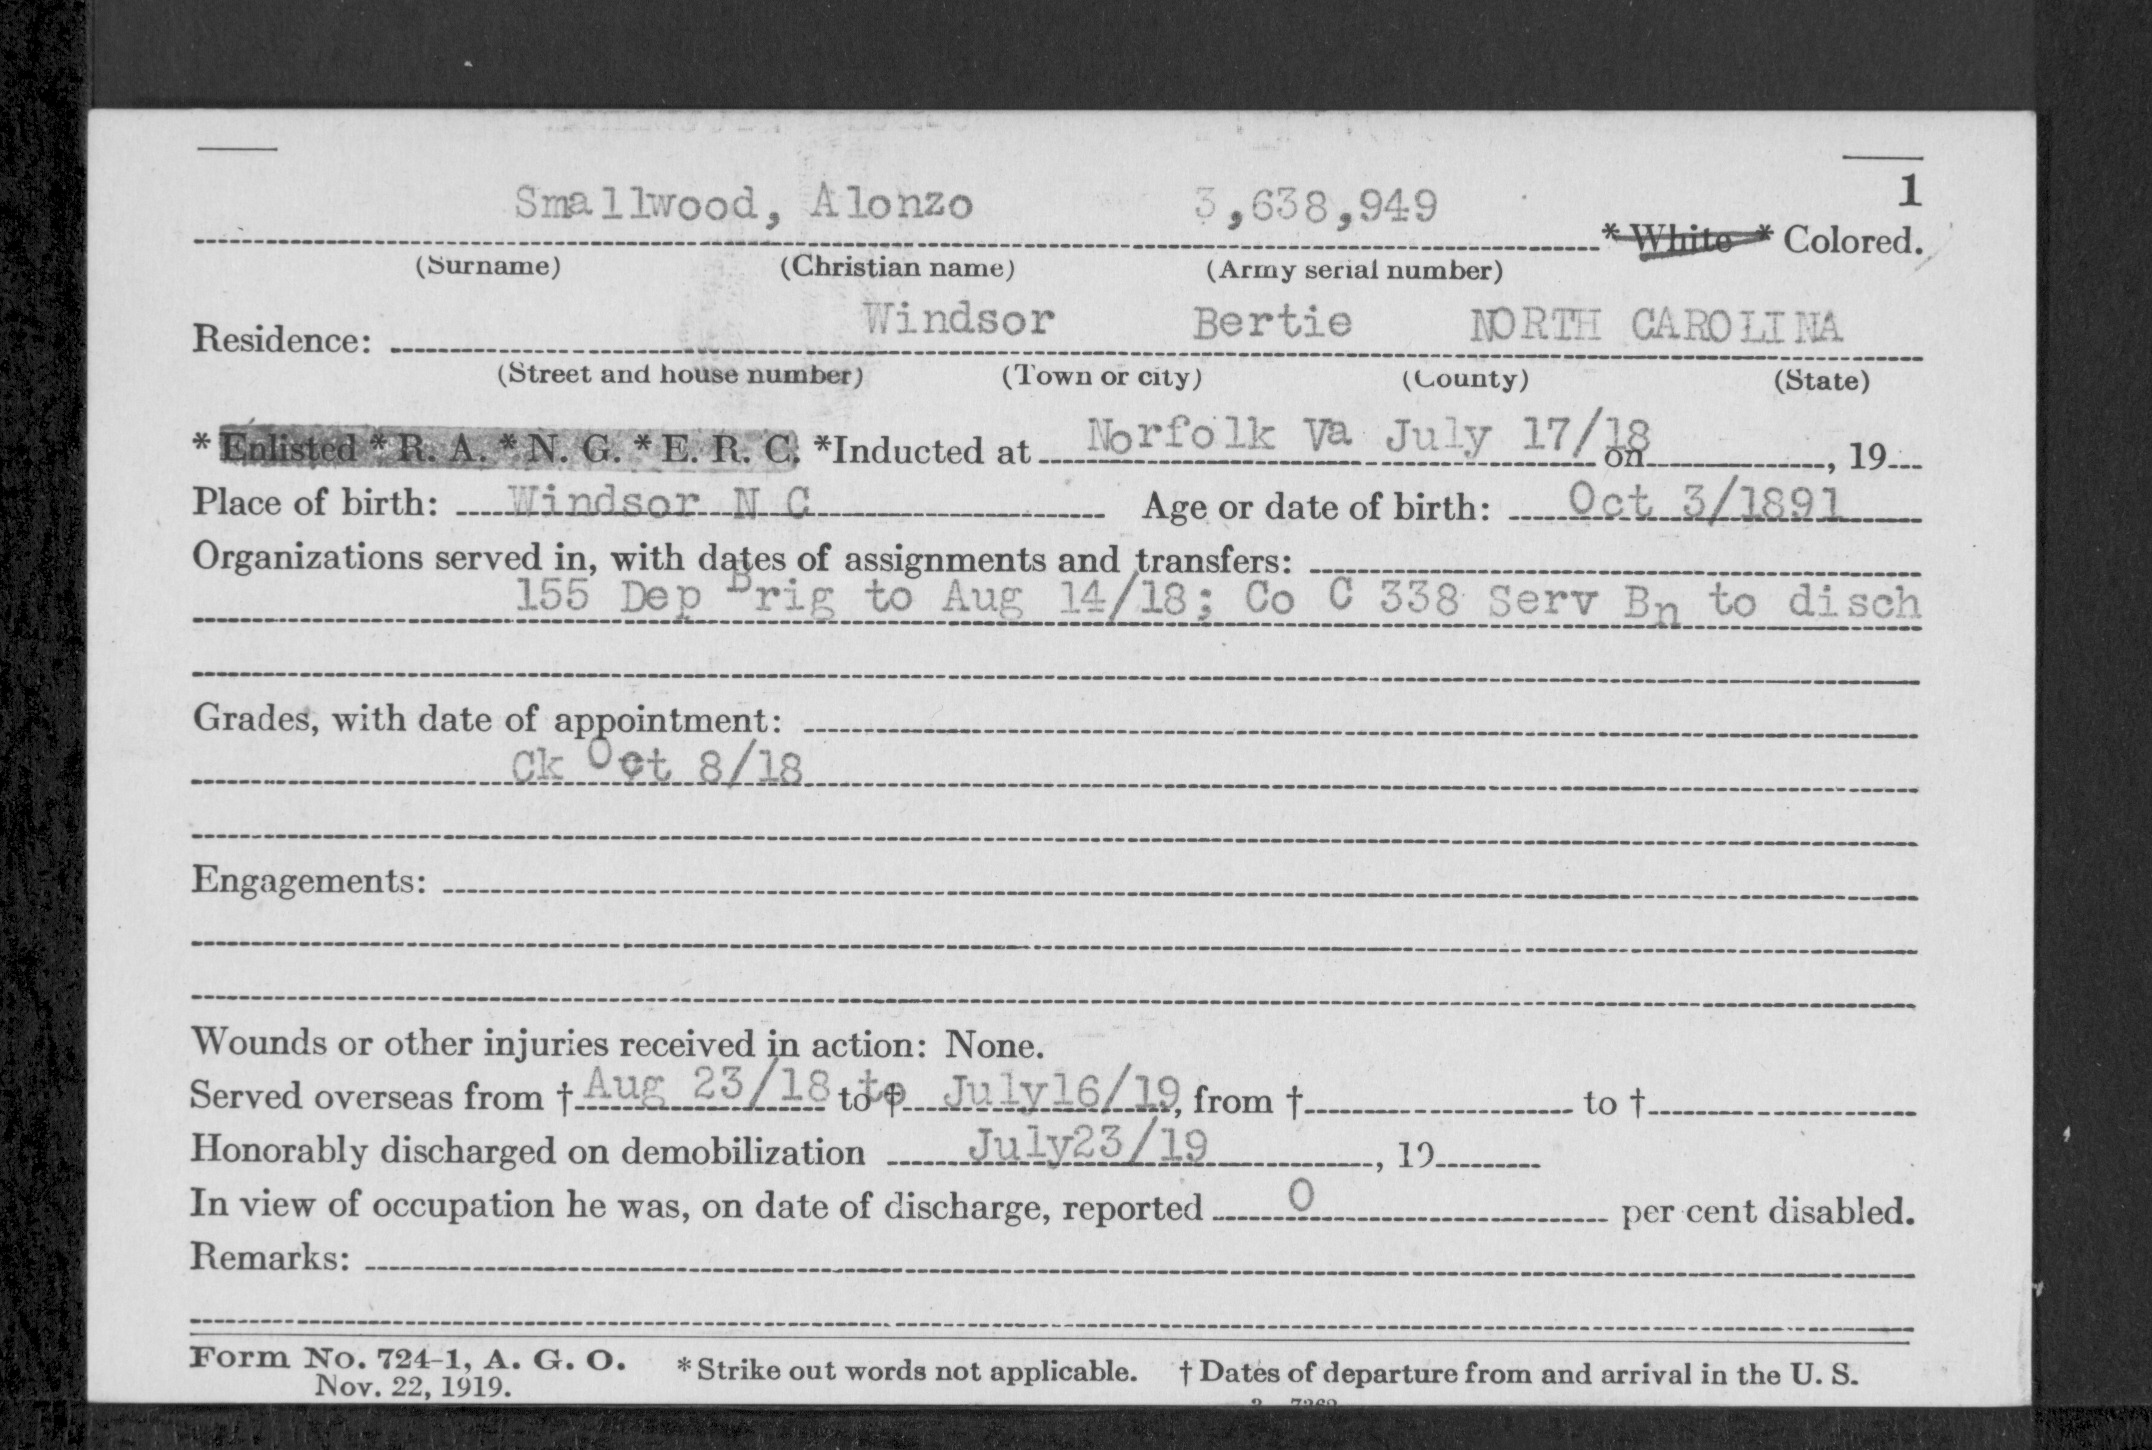 1
Smallwood, Alonzo 3,638,949 * White * Colored.
(Surname) (Christian name) (Army serial number)
Residence: Windsor Bertie NORTH CAROLINA
(Street and house number) (Town or city) (County) (State)
* Enlisted * R. A. * N. G. * E. R. C. *Inducted at Norfolk Va July 17/18 on , 19
Place of birth: Windsor N C Age or date of birth: Oct 3/1891
Organizations served in, with dates of assignments and transfers:
155 Dep Brig to Aug 14/18; Co C 338 Serv Bn to disch
Grades, with date of appointment:
Ck Oct 8/18
Engagements:
Wounds or other injuries received in action: None.
Served overseas from † Aug 23/18 to † to July16/19, from † to †
Honorably discharged on demobilization July23/19 , 19
In view of occupation he was, on date of discharge, reported 0 per cent disabled.
Remarks:
Form No. 724-1, A. G. O. * Strike out words not applicable. † Dates of departure from and arrival in the U. S.
Nov. 22, 1919.